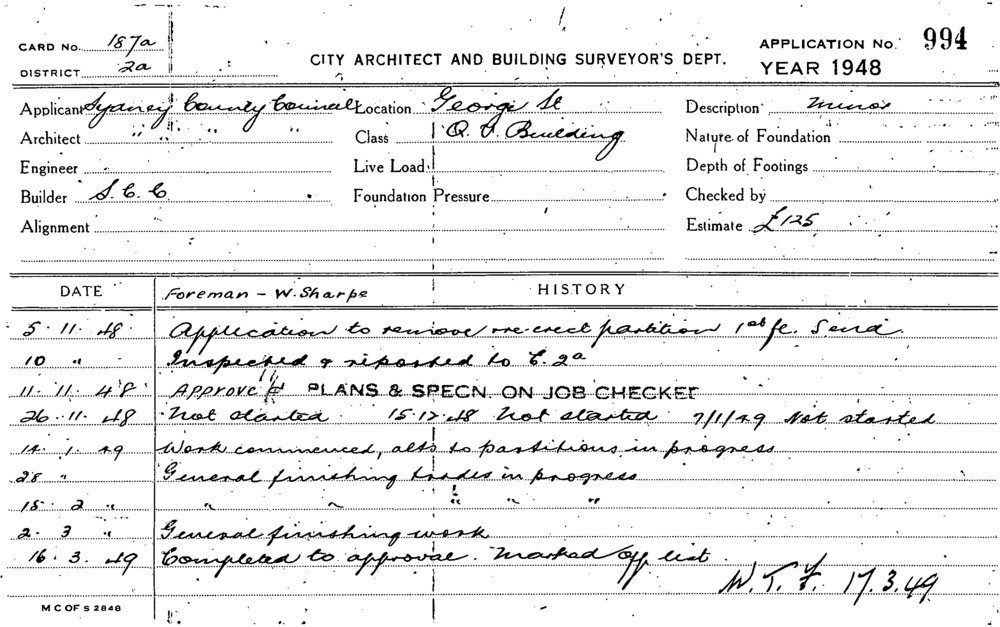 CARD No. 187a
DISTRICT 2a
CITY ARCHITECT AND BUILDING SURVEYOR'S DEPT.
APPLICATION No. 994
YEAR 1948
Applicant Sydney County Council Location George St Description Minor
Architect " " " Class Q. V. Building Nature of Foundation
Engineer Live Load Depth of Footings
Builder S. C. C Foundation Pressure Checked by
Alignment Estimate £125
DATE Foreman - W. Sharpe HISTORY
5. 11. 48 Application to remove & re-erect partition 1st fl. Send.
10 " " Inspected & reported to C. 2a
11. 11. 48 Approved PLANS & SPECN. ON JOB CHECKED
26. 11. 48 Not started 15.12.48 Not started 7/1/49 Not started
14. 1. 49 Work commenced, alts to partitions in progress
28 " General finishing trades in progress
15 2 " " " " " "
2. 3 " General finishing work
16. 3. 49 Completed to approval. Marked off list.
W. T. 17.3.49
M C OF S 2848